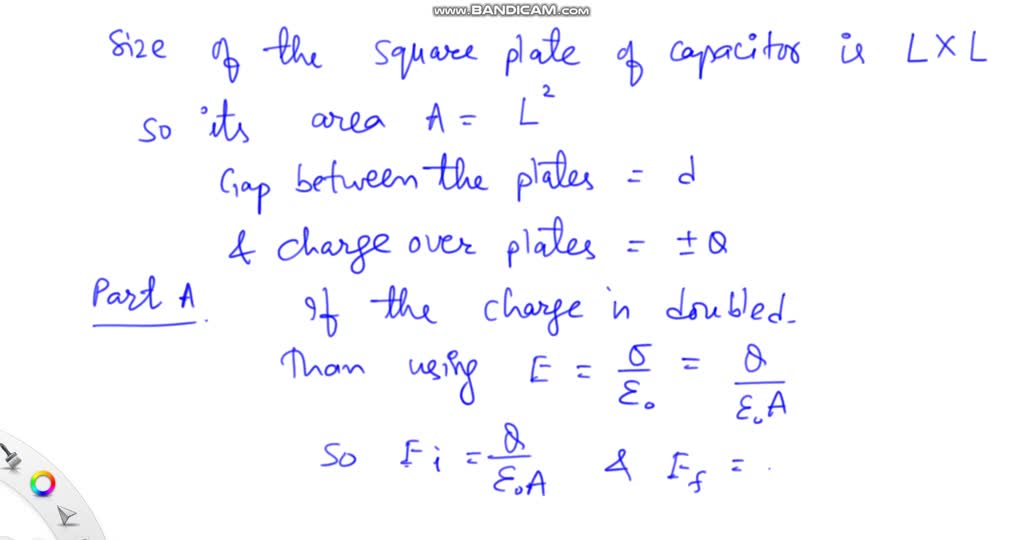 www.BANDICAM.com
Size of the square plate of capacitor is L X L
So its area A = L²
Gap between the plates = d
& charge over plates = ± Q
Part A. If the charge is doubled.
Than using E = σ/ε₀ = Q/ε₀A
So Ei = Q/ε₀A & Ef = .